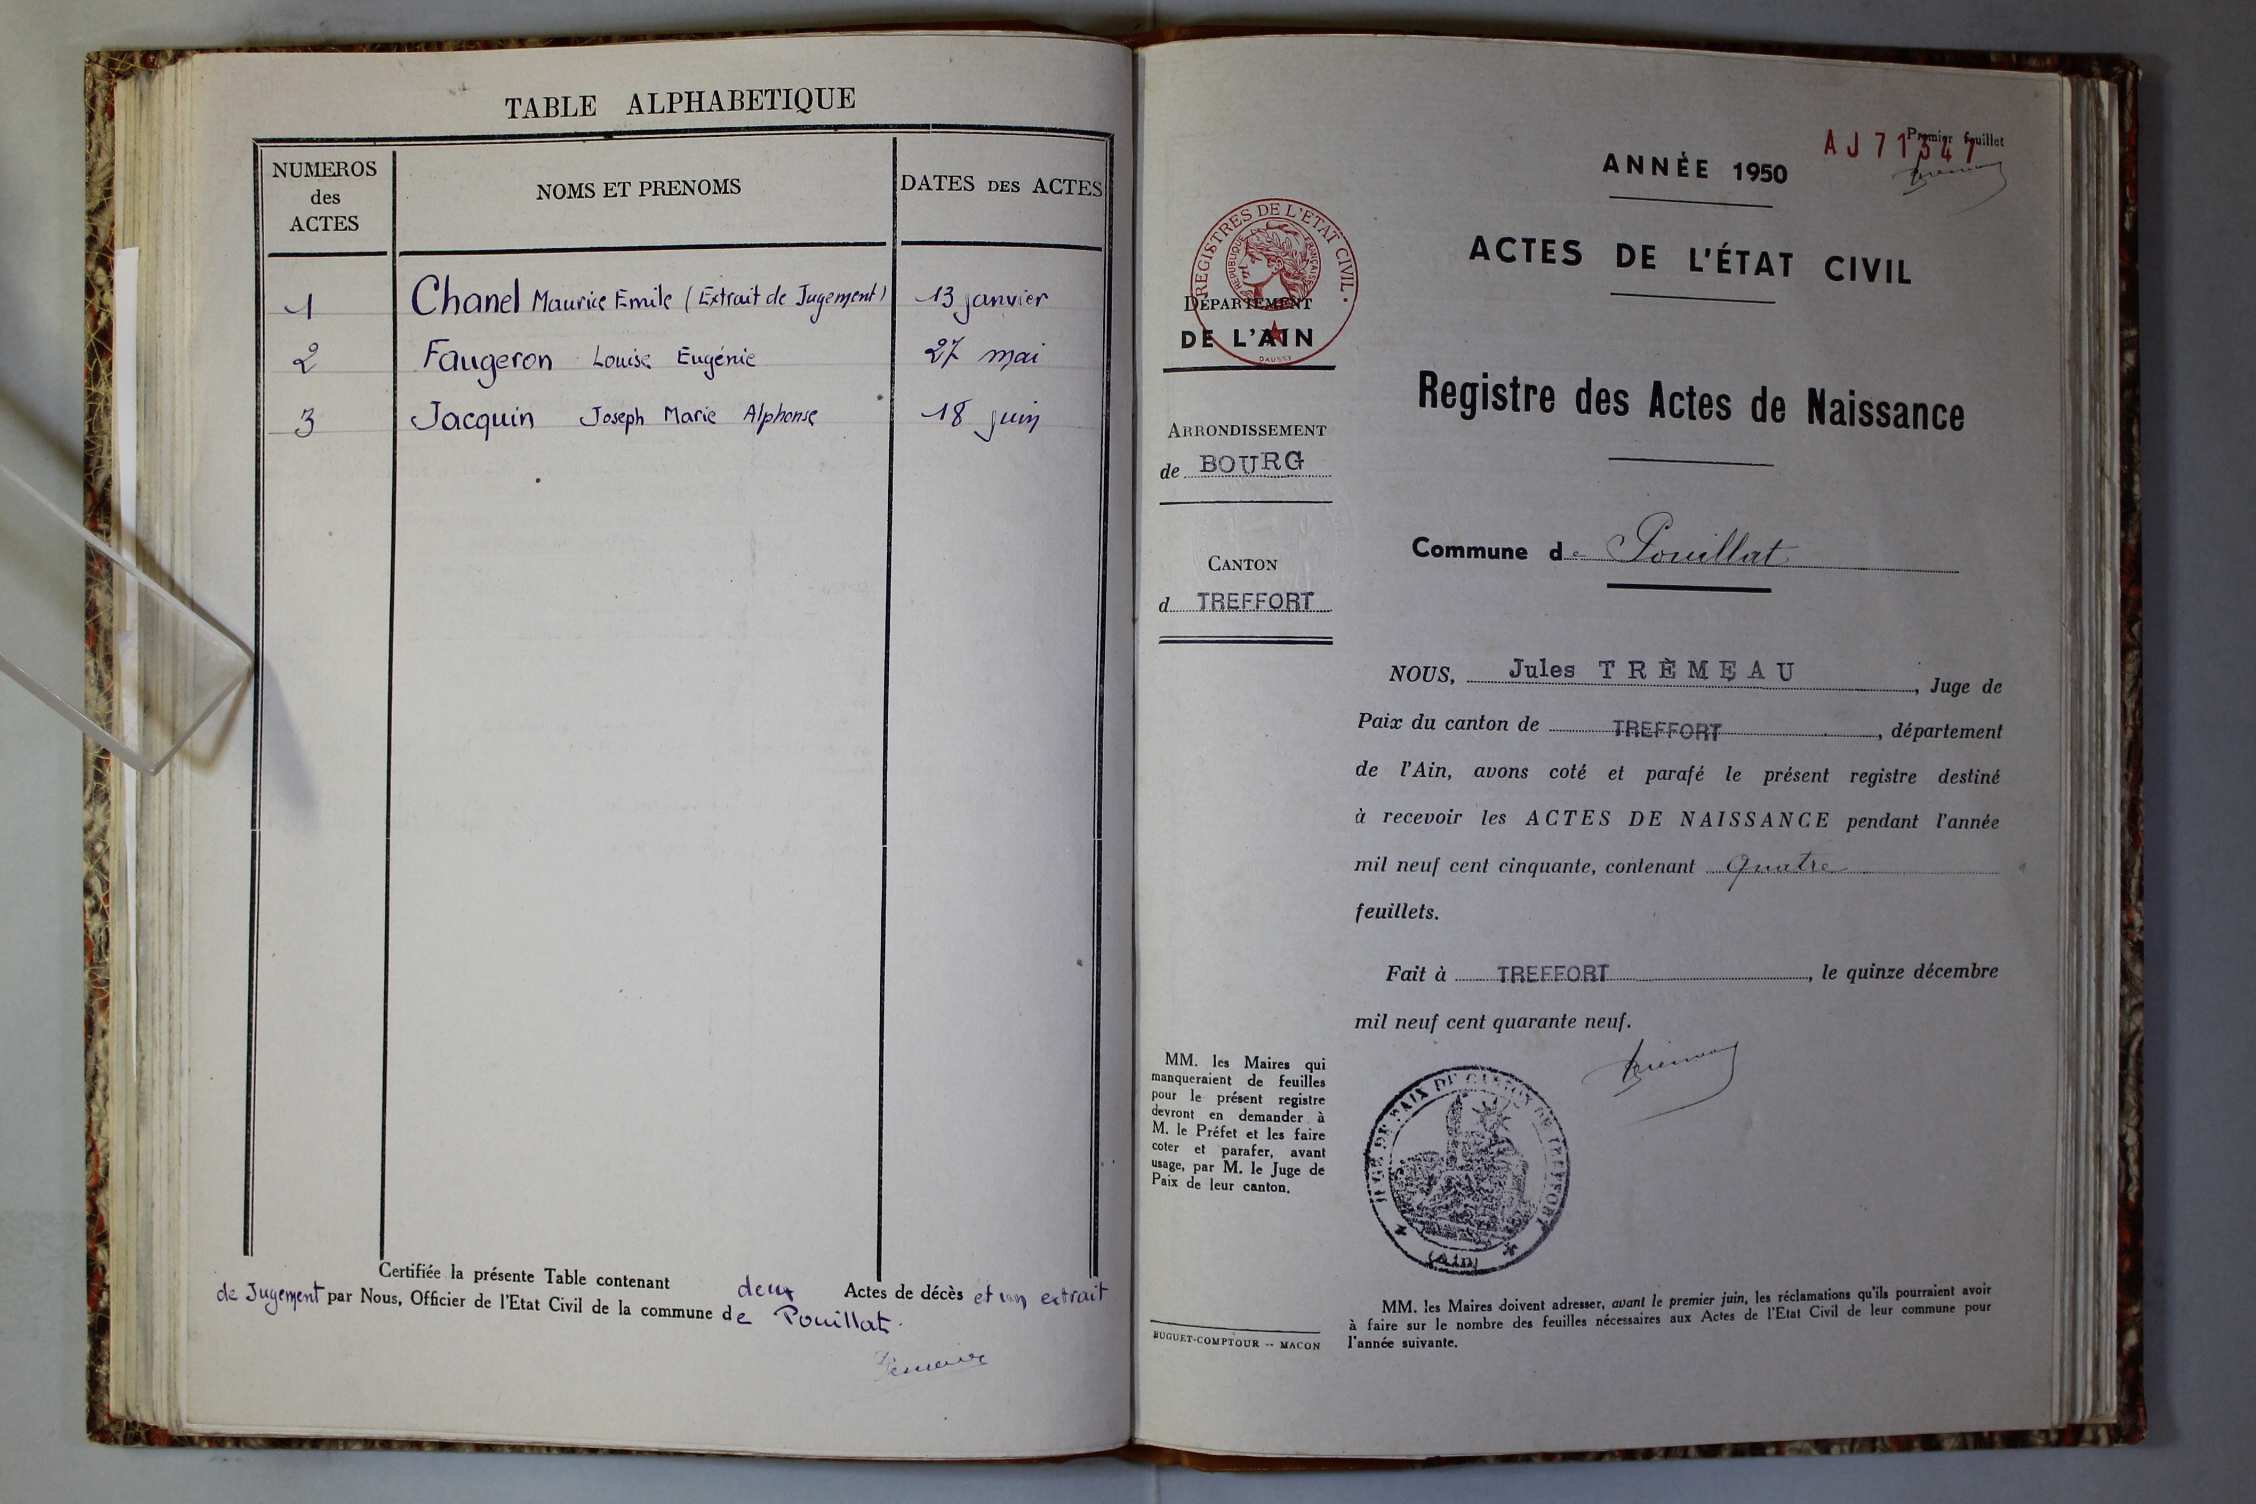 TABLE ALPHABETIQUE
NUMEROS
des
ACTES
NOMS ET PRENOMS
DATES DES ACTES
1 Chanel Maurice Emile (Extrait de Jugement) 13 janvier
2 Faugeron Louise Eugénie 27 mai
3 Jacquin Joseph Marie Alphonse 18 juin
Certifiée la présente Table contenant deux Actes de décès et un extrait
de Jugement par Nous, Officier de l'Etat Civil de la commune de Pouillat.
Premier feuillet
AJ71347
ANNÉE 1950
ACTES DE L'ÉTAT CIVIL
REGISTRES DE L'ETAT CIVIL
REPUBLIQUE FRANÇAISE
DAUSSY
DÉPARTEMENT
DE L'AIN
Registre des Actes de Naissance
ARRONDISSEMENT
de BOURG
CANTON
d TREFFORT
Commune de Pouillat
NOUS, Jules TRÈMEAU, Juge de
Paix du canton de TREFFORT, département
de l'Ain, avons coté et parafé le présent registre destiné
à recevoir les ACTES DE NAISSANCE pendant l'année
mil neuf cent cinquante, contenant Quatre
feuillets.
Fait à TREFFORT, le quinze décembre
mil neuf cent quarante neuf.
MM. les Maires qui
manqueraient de feuilles
pour le présent registre
devront en demander à
M. le Préfet et les faire
coter et parafer, avant
usage, par M. le Juge de
Paix de leur canton.
JUGE DE PAIX DU CANTON DE TREFFORT
(Ain)
MM. les Maires doivent adresser, avant le premier juin, les réclamations qu'ils pourraient avoir
à faire sur le nombre des feuilles nécessaires aux Actes de l'Etat Civil de leur commune pour
l'année suivante.
BUGUET-COMPTOUR -- MACON